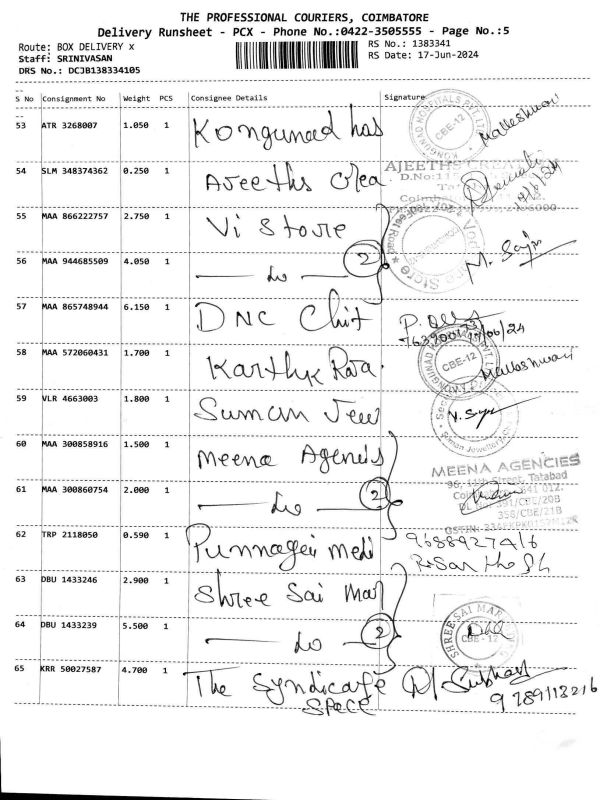 THE PROFESSIONAL COURIERS, COIMBATORE
Delivery Runsheet - PCX - Phone No.:0422-3505555 - Page No.:5
Route: BOX DELIVERY x
RS No.: 1383341
Staff: SRINIVASAN
RS Date: 17-Jun-2024
DRS No.: DCJB138334105
S No Consignment No Weight PCS Consignee Details Signature
53 ATR 3268007 1.050 1 Kongunad hos Malleshwari
KONGUNAD HOSPITALS PVT. LTD. CBE-12
54 SLM 348374362 0.250 1 Ajeeths Crea.
AJEETHS
D.No:11
17/6/24
55 MAA 866222757 2.750 1 Vi Store
56 MAA 944685509 4.050 1 — do — 2
M.
57 MAA 865748944 6.150 1 DNC Chit
58 MAA 572060431 1.700 1 Karthik Raja.
CBE-12
Malleshwari
59 VLR 4663003 1.800 1 Suman Jew
60 MAA 300858916 1.500 1 Meena Agencies
MEENA AGENCIES
Street, Tatabad
61 MAA 300860754 2.000 1 — do — 2
641 012.
/CBE/20B
358/CBE/21B
62 TRP 2118050 0.590 1 Punnagai Medi 9688927416
63 DBU 1433246 2.900 1 Shree Sai Mar
64 DBU 1433239 5.500 1 — do — 2
SHREE SAI MAR
CBE-12
65 KRR 50027587 4.700 1 The Syndicate
Space
9789113216